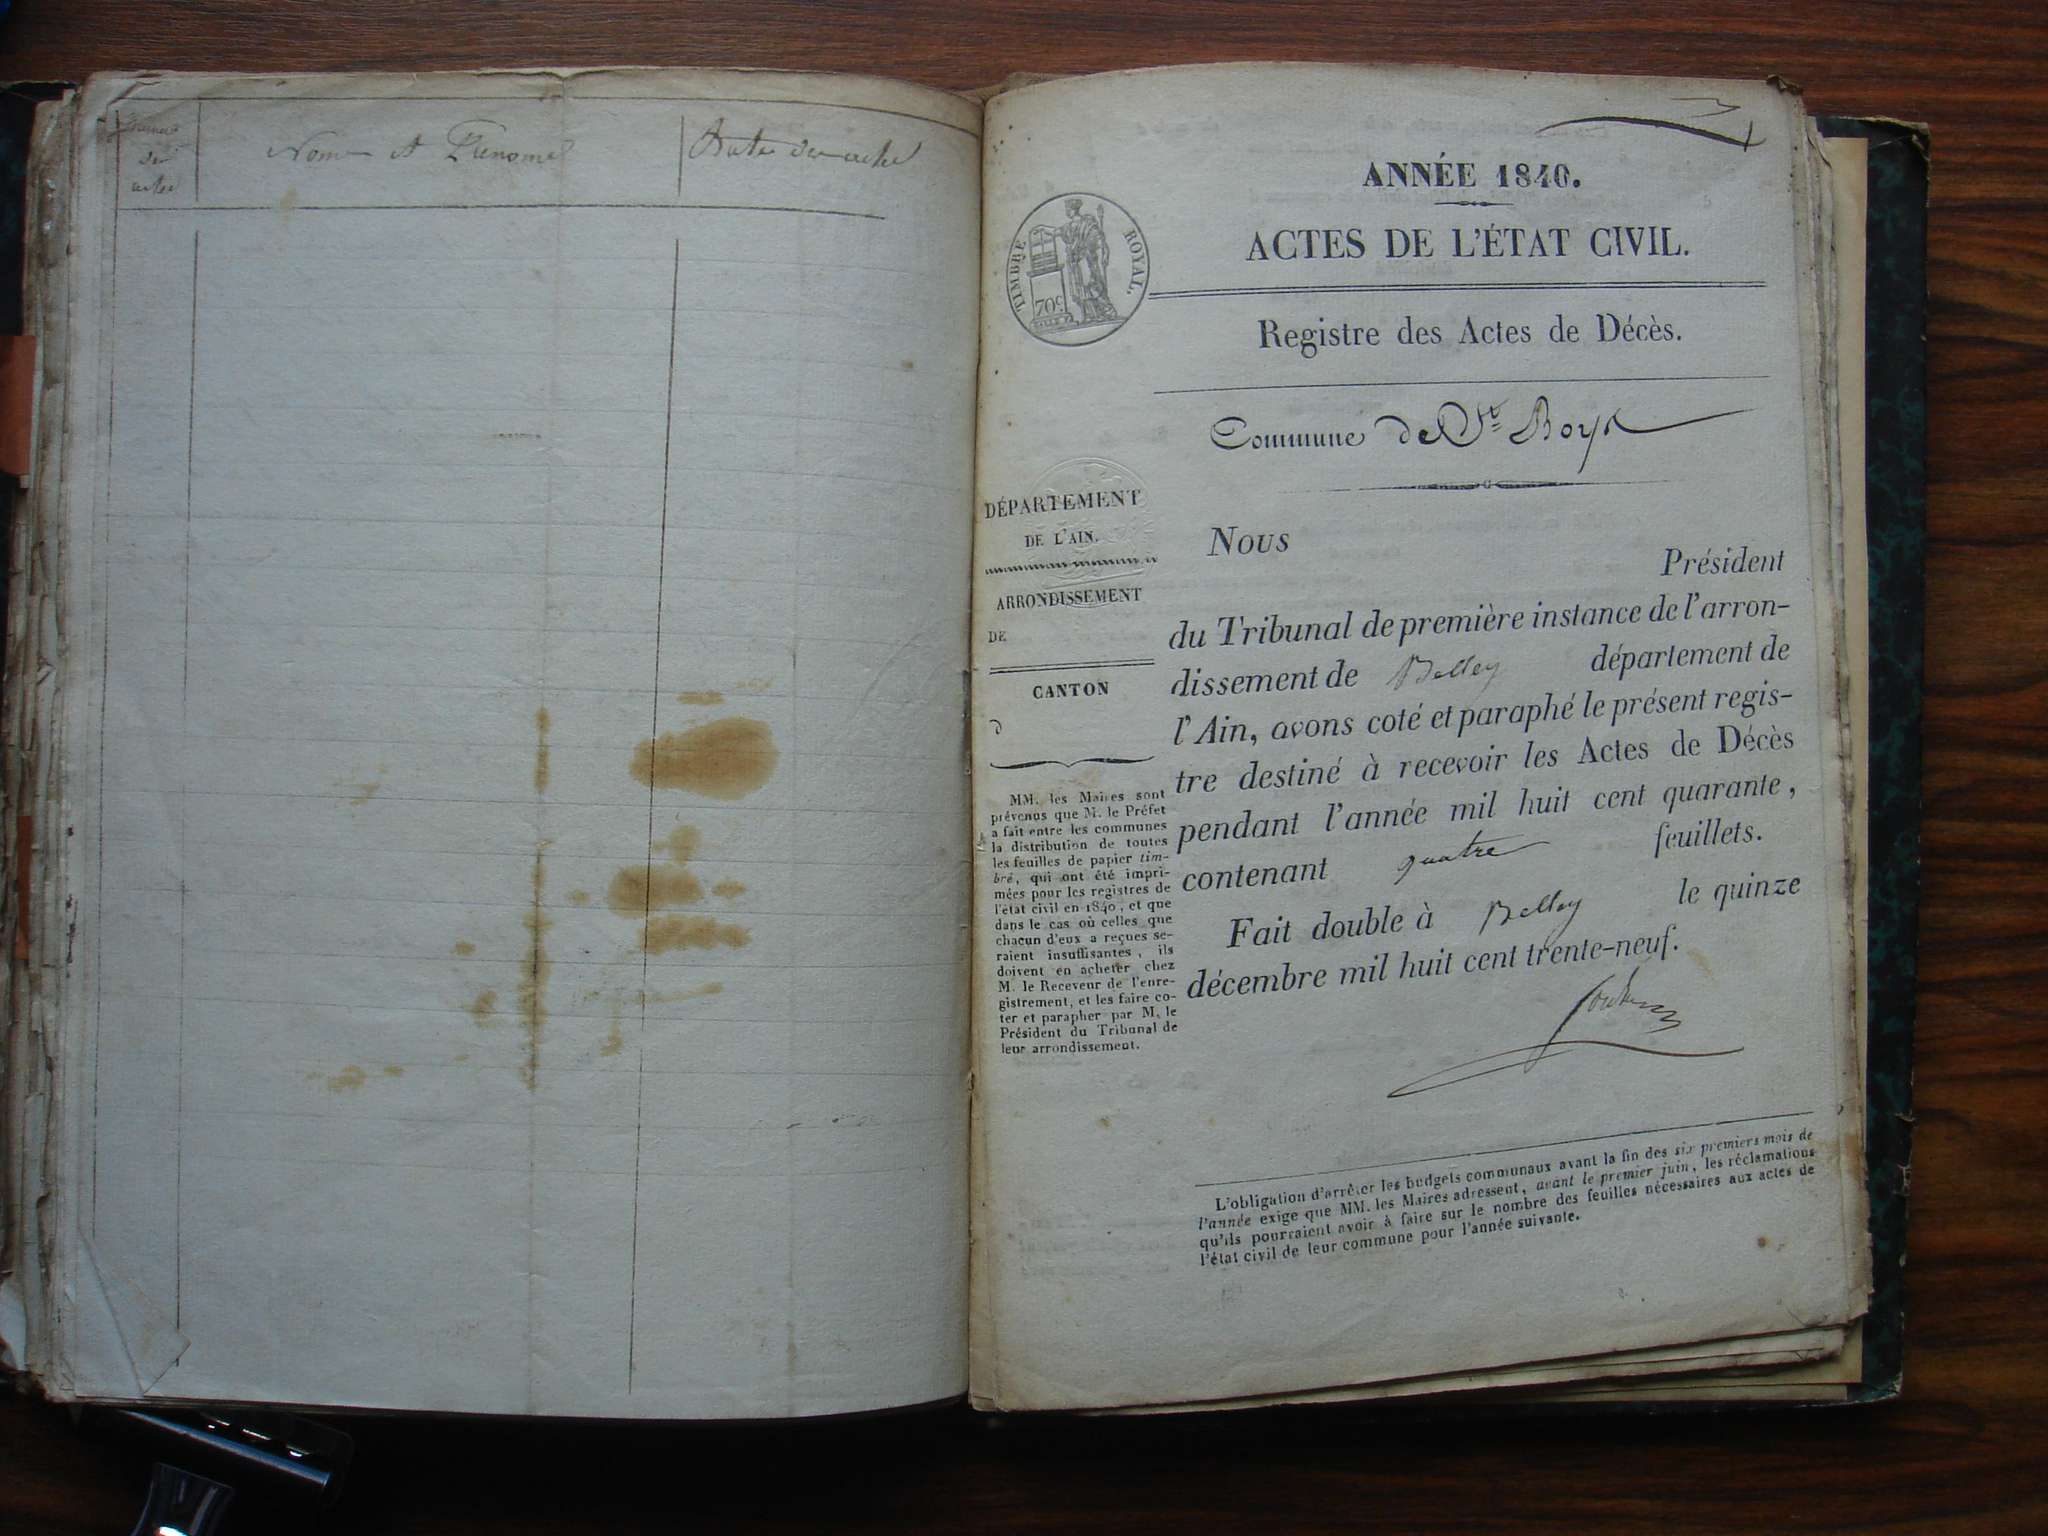 de
actes
Noms et Prénoms
Date des actes
ANNÉE 1840.
ACTES DE L'ÉTAT CIVIL.
TIMBRE ROYAL.
70c.
Registre des Actes de Décès.
Commune de St Boys
DÉPARTEMENT
DE L'AIN.
ARRONDISSEMENT
DE
CANTON
d
MM. les Maires sont
prévenus que M. le Préfet
a fait entre les communes
la distribution de toutes
les feuilles de papier tim-
bré, qui ont été impri-
mées pour les registres de
l'état civil en 1840, et que
dans le cas où celles que
chacun d'eux a reçues se-
raient insuffisantes, ils
doivent en acheter chez
M. le Receveur de l'enre-
gistrement, et les faire co-
ter et parapher par M. le
Président du Tribunal de
leur arrondissement.
Nous
Président
du Tribunal de première instance de l'arron-
dissement de Belley département de
l'Ain, avons coté et paraphé le présent regis-
tre destiné à recevoir les Actes de Décès
pendant l'année mil huit cent quarante,
contenant quatre feuillets.
Fait double à Belley le quinze
décembre mil huit cent trente-neuf.
L'obligation d'arrêter les budgets communaux avant la fin des six premiers mois de
l'année exige que MM. les Maires adressent, avant le premier juin, les réclamations
qu'ils pourraient avoir à faire sur le nombre des feuilles nécessaires aux actes de
l'état civil de leur commune pour l'année suivante.